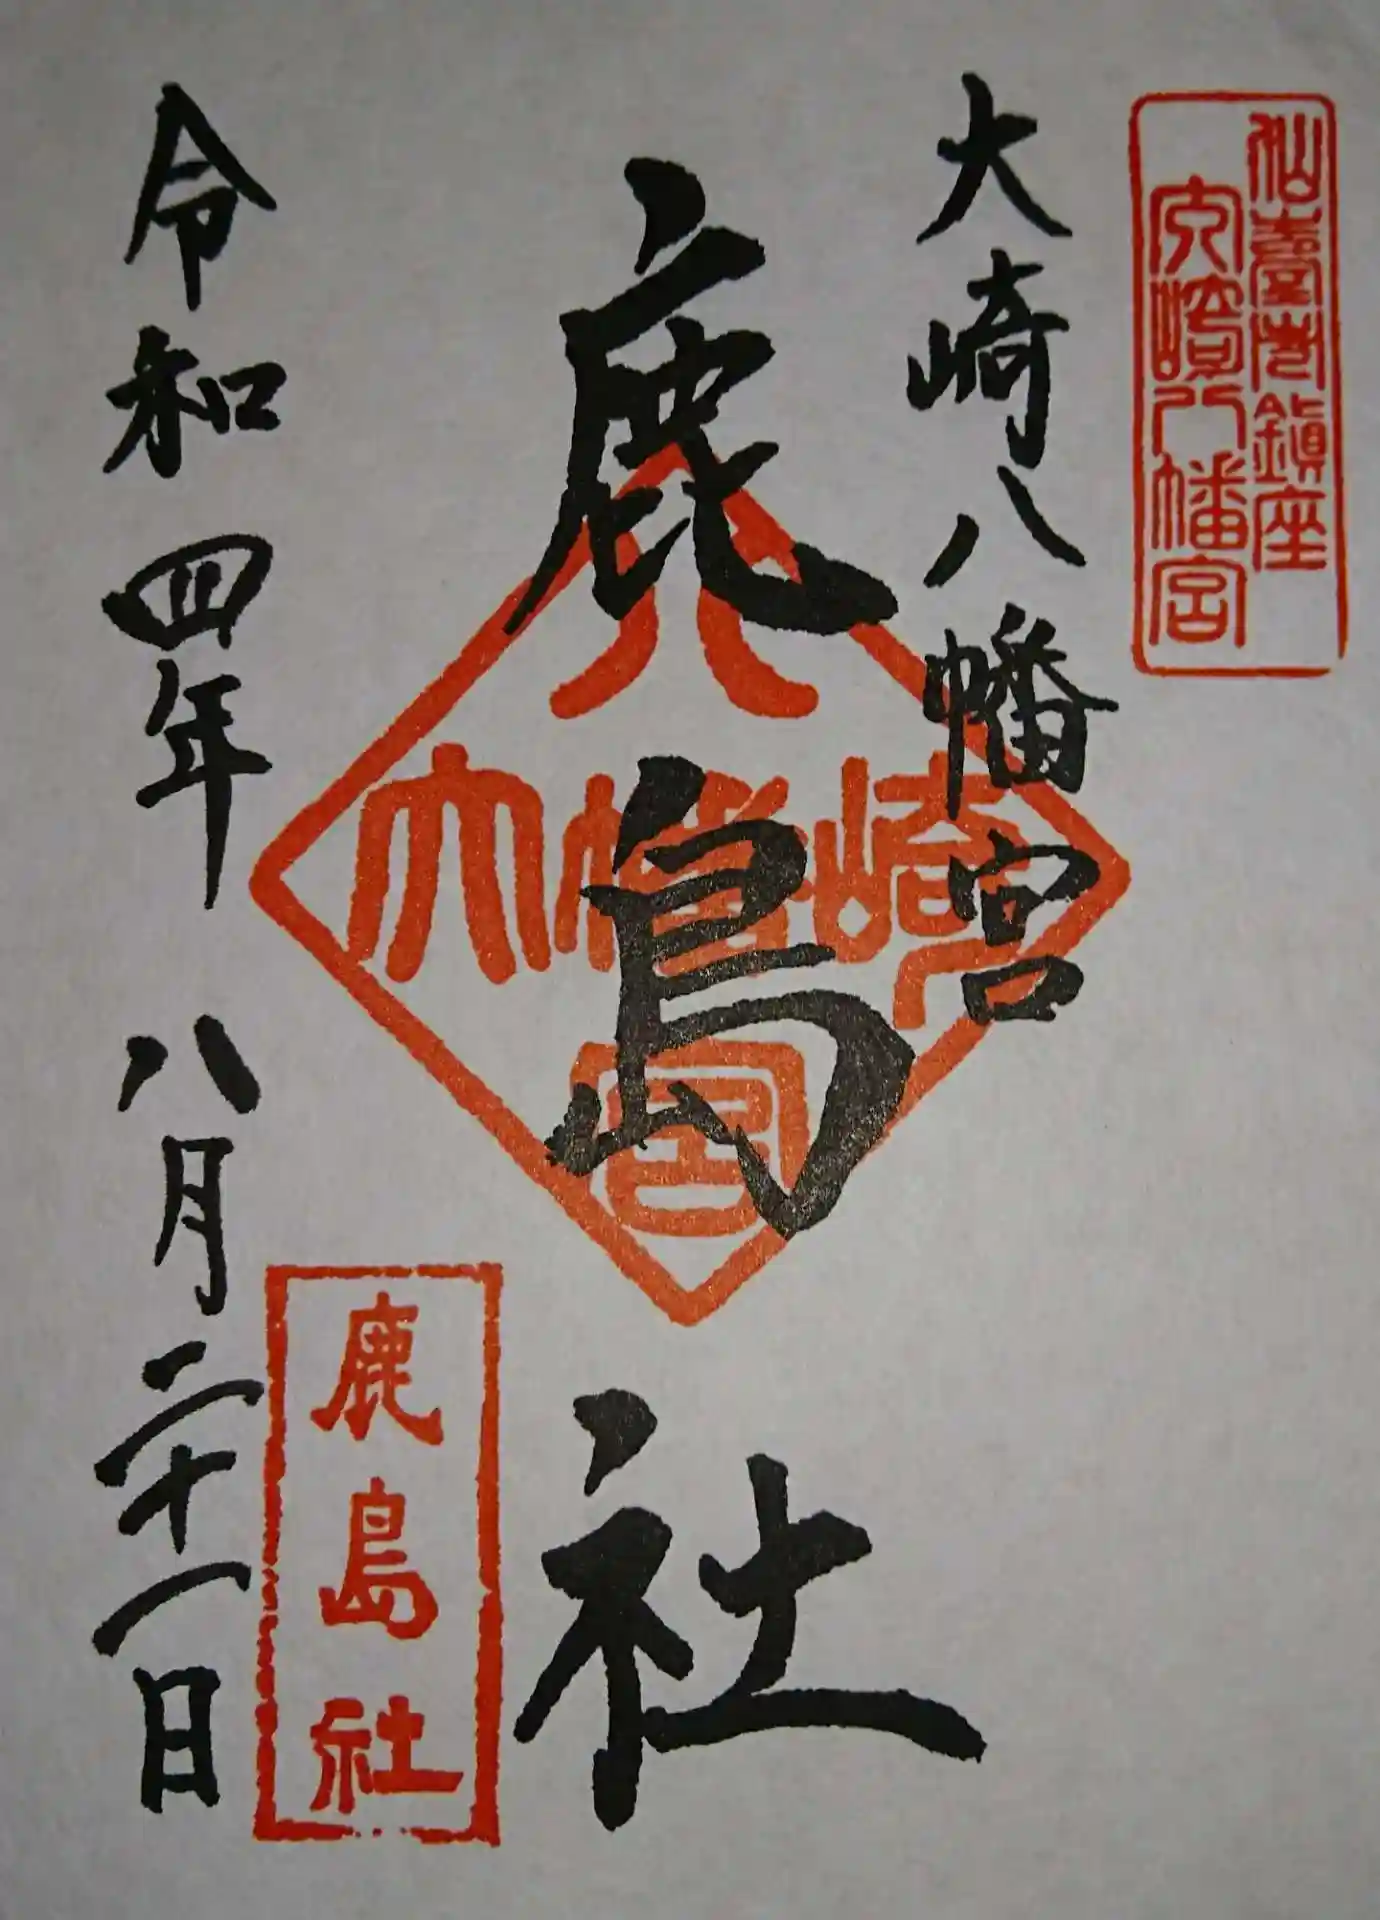 仙臺市鎮座
大崎八幡宮
大崎八幡宮
鹿島社
八
大幡崎
宮
鹿島社
令和四年八月二十一日